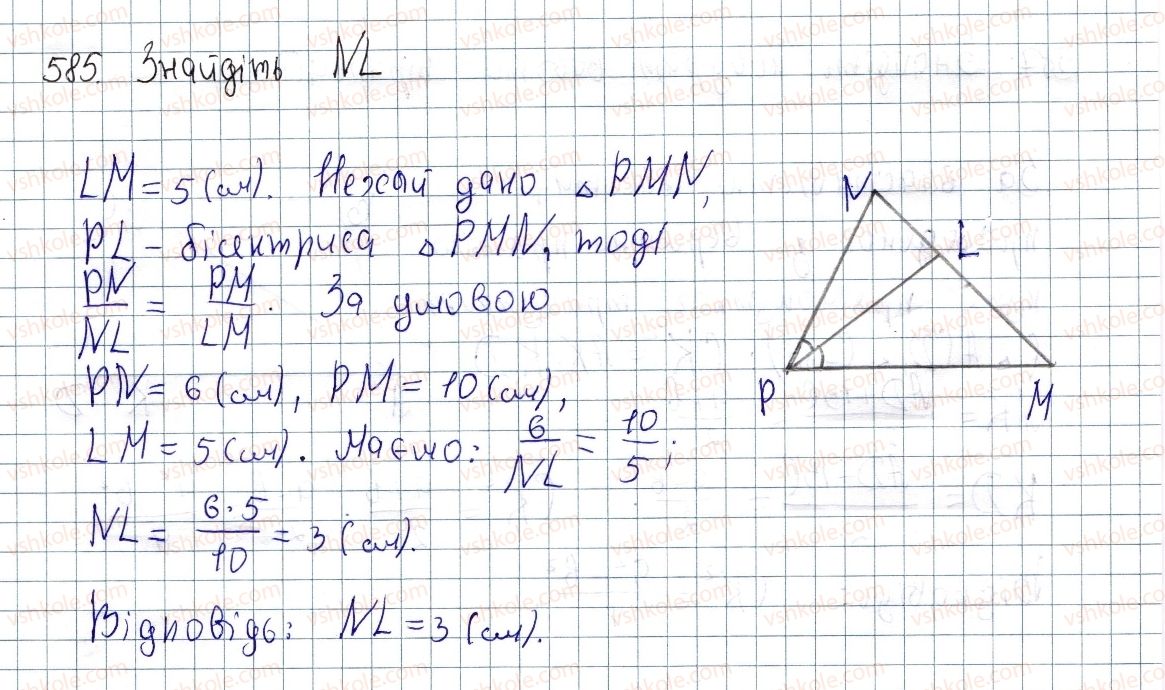 585. Знайдіть NL
LM = 5 (см). Нехай дано △ PMN,
PL - бісектриса △ PMN, тоді
PN/NL = PM/LM. За умовою
PN = 6 (см), PM = 10 (см),
LM = 5 (см). Маємо: 6/NL = 10/5;
NL = 6·5/10 = 3 (см).
Відповідь: NL = 3 (см).
N
L
P
M
vshkole.com